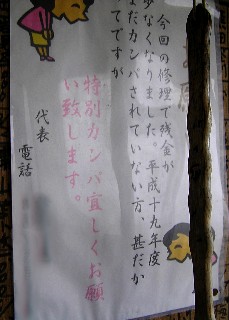 今回の修理で残金が
少なくなりました。平成十九年度
まだカンパされていない方、甚だか
てですが
特別カンパ宜しくお願
い致します。
代表
電話